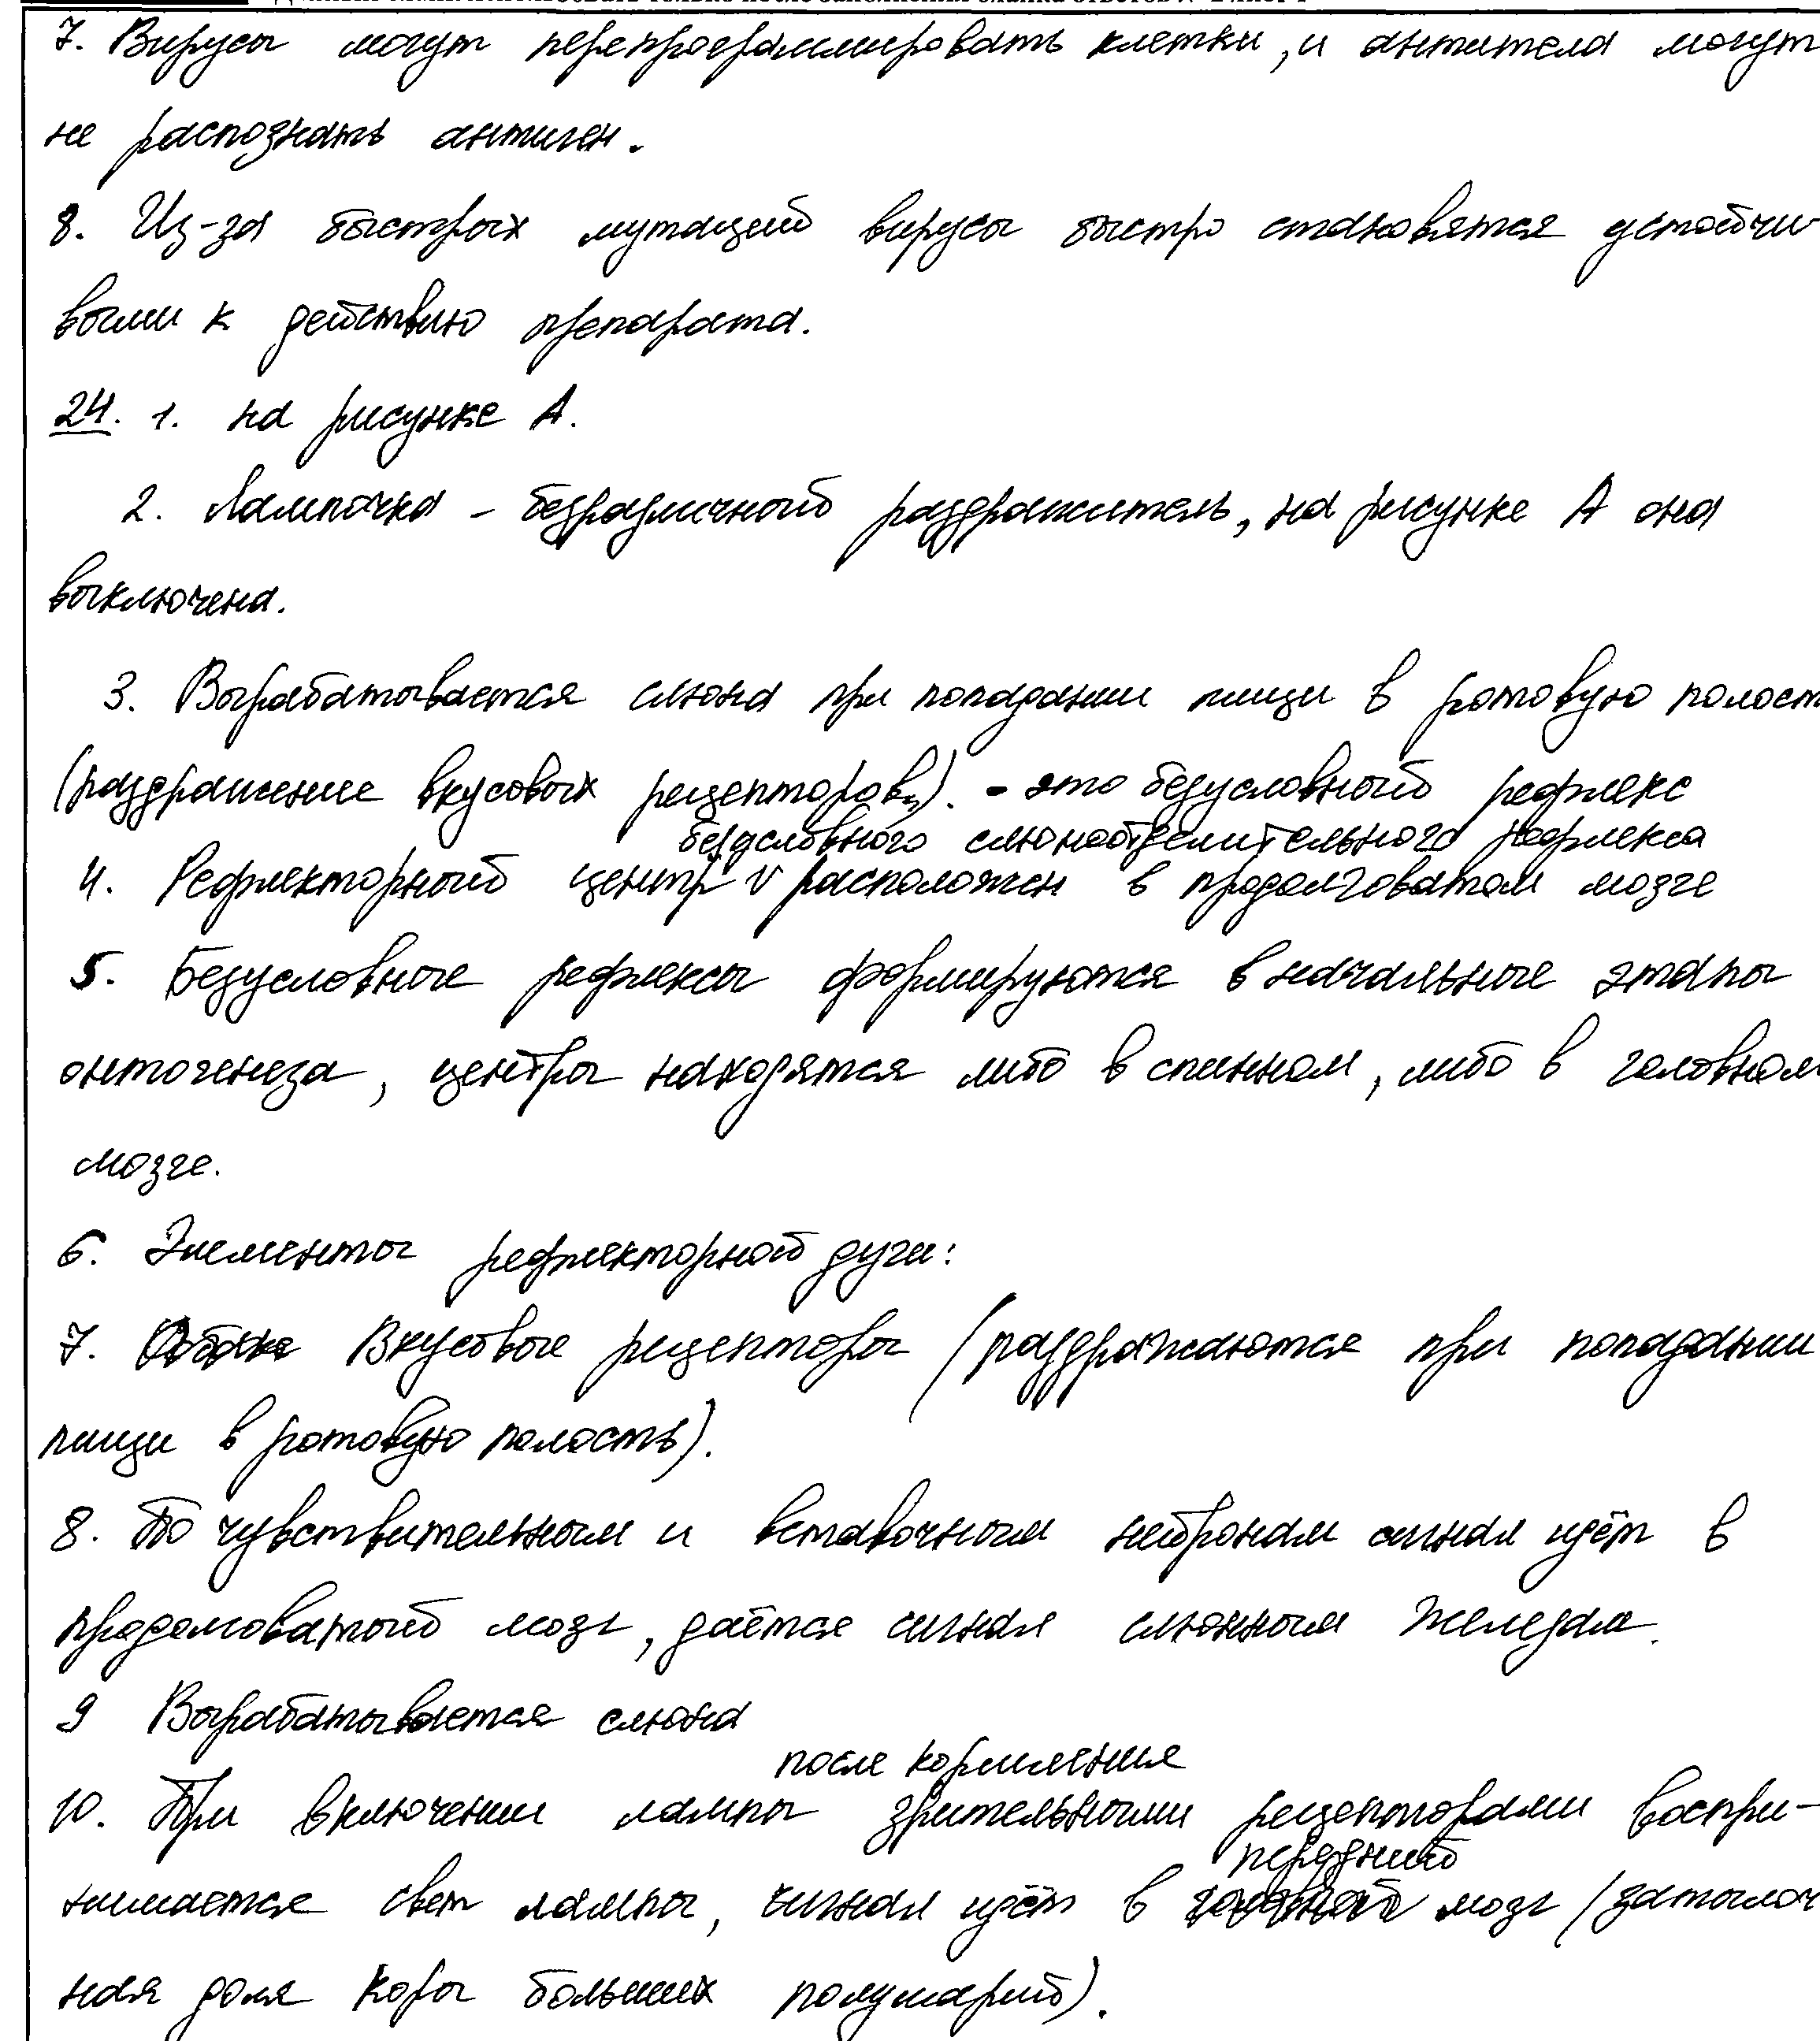 7. Вирусы могут перепрограммировать клетки, и антитела могут
не распознать антиген.
8. Из-за быстрых мутаций вирусы быстро становятся устойчи-
выми к действию препарата.
24. 1. на рисунке А.
2. Лампочка - безразличный раздражитель, на рисунке А она
выключена.
3. Вырабатывается слюна при попадании пищи в ротовую полост
(раздражение вкусовых рецепторов). - это безусловный рефлекс
безусловного слюноотделительного рефлекса
4. Рефлекторный центр v расположен в продолговатом мозге
5. Безусловные рефлексы формируются в начальные этапы
онтогенеза, центры находятся либо в спинном, либо в головном
мозге.
6. Элементы рефлекторной дуги:
7. Вкусовые рецепторы (раздражаются при попадании
пищи в ротовую полость).
8. По чувствительным и вставочным нейронам сигнал идёт в
продолговатый мозг, даётся сигнал слюнным железам.
9 Вырабатывается слюна
после кормления
10. При включении лампы зрительными рецепторами воспри-
нимается свет лампы, сигнал идёт в передний мозг (затылоч
ная доля коры больших полушарий).